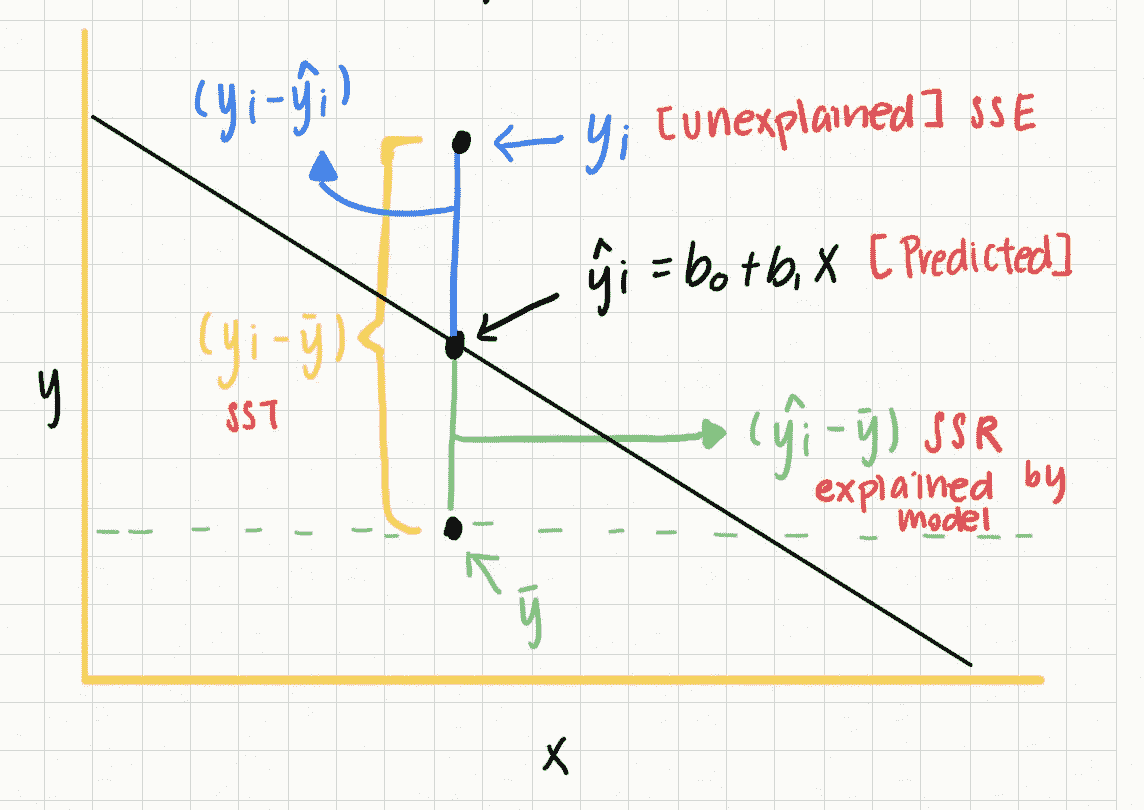 (yᵢ - ŷᵢ)
yᵢ [unexplained] SSE
ŷᵢ = b₀ + b₁ x [Predicted]
(yᵢ - ȳ)
SST
y
(ŷᵢ - ȳ) SSR
explained by
model
ȳ
x